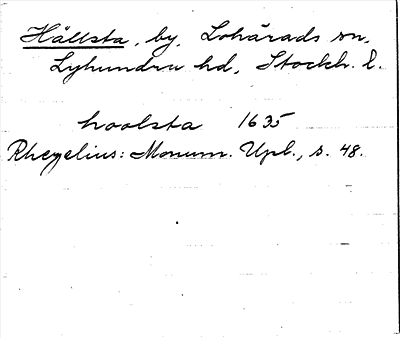 Hållsta, by, Lohärads sn,
Lyhundra hd, Stockh. l.
hoolsta 1635
Rhezelius: Monum. Upl., s. 48.